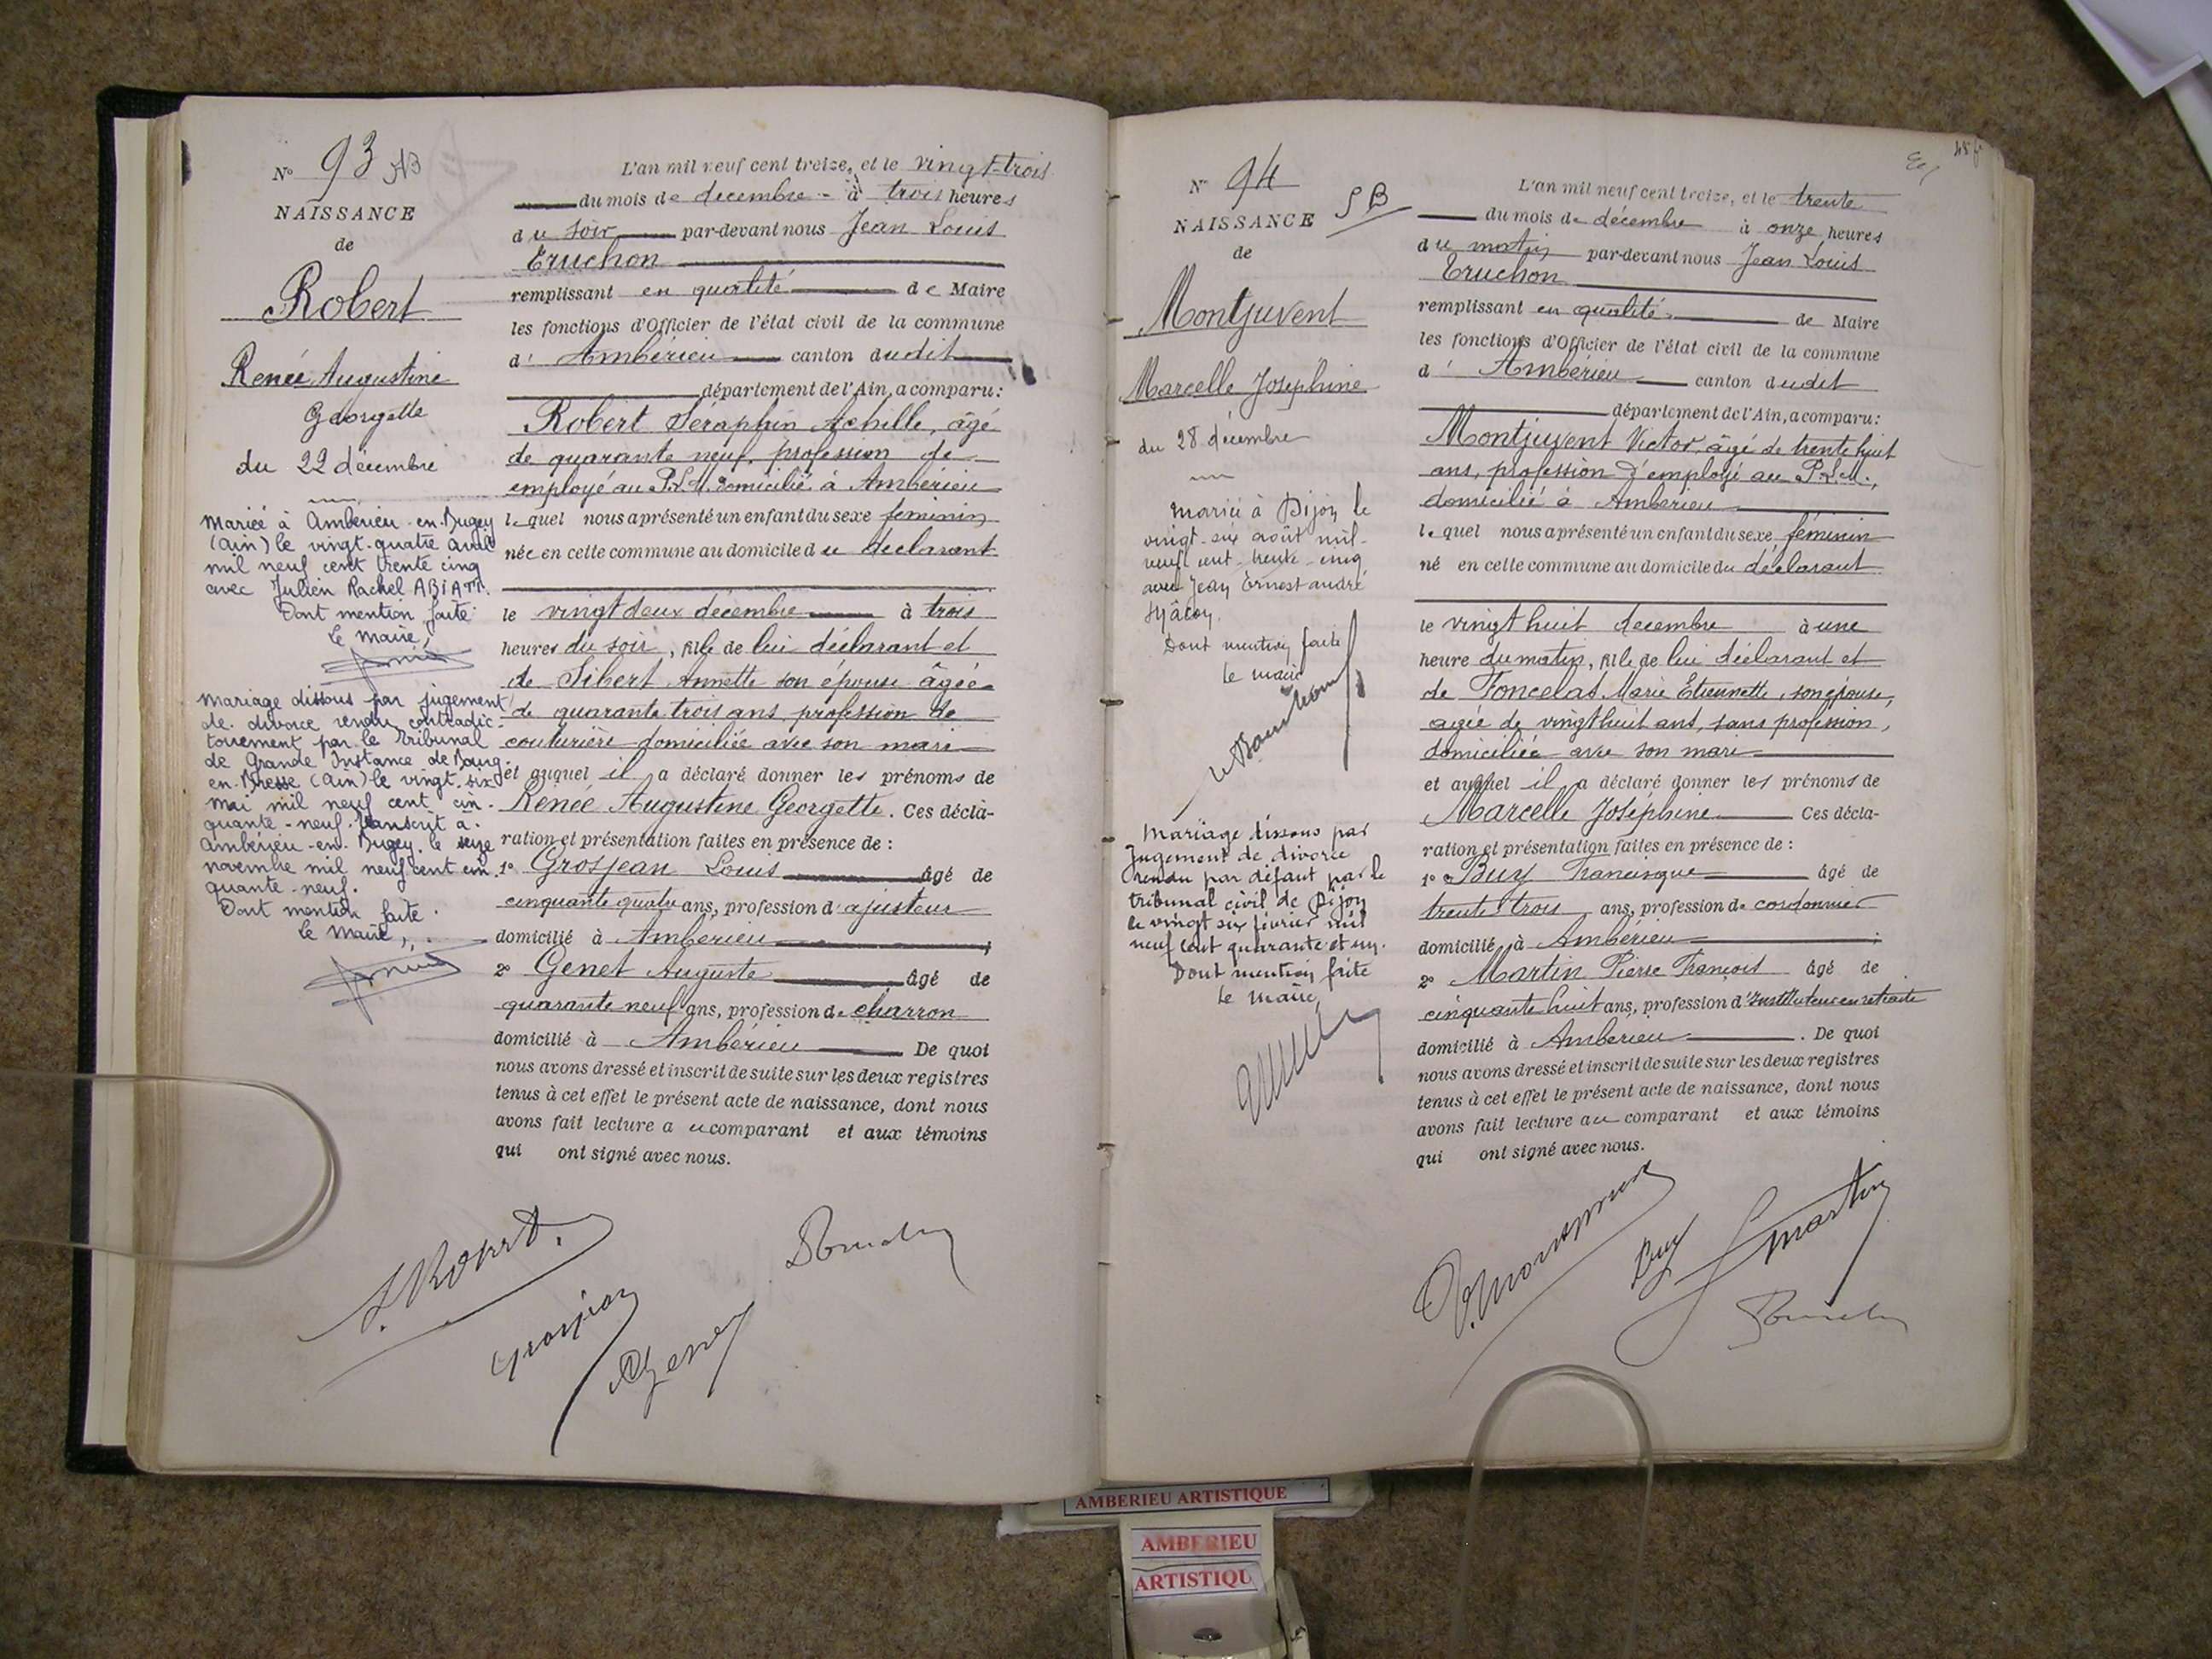 N° 93 AB
NAISSANCE
de
Robert
Renée Augustine
Georgette
du 22 décembre
Mariée à Ambérieu-en-Bugey
(Ain) le vingt-quatre avril
mil neuf cent trente cinq
avec Julien Rachel ABIATTI.
Dont mention faite
le Maire,
Mariage dissous par jugement
de divorce rendu contradic-
toirement par le Tribunal
de Grande Instance de Bourg-
en-Bresse (Ain) le vingt-six
mai mil neuf cent cin-
quante-neuf. Transcrit à
Ambérieu-en-Bugey le seize
novembre mil neuf cent cin-
quante-neuf.
Dont mention faite.
le Maire,
L'an mil neuf cent treize, et le vingt-trois
du mois de décembre à trois heures
du soir par-devant nous Jean Louis
Truchon
remplissant en qualité de Maire
les fonctions d'Officier de l'état civil de la commune
d' Ambérieu canton dudit
département de l'Ain, a comparu:
Robert Séraphin Achille, âgé
de quarante neuf, profession de
employé au P.L.M. domicilié à Ambérieu
lequel nous a présenté un enfant du sexe féminin
née en cette commune au domicile du déclarant
le vingt deux décembre à trois
heures du soir, fille de lui déclarant et
de Sibert Annette son épouse âgée
de quarante trois ans profession de
couturière domiciliée avec son mari
et auquel il a déclaré donner les prénoms de
Renée Augustine Georgette. Ces décla-
ration et présentation faites en présence de :
1° Grosjean Louis âgé de
cinquante quatre ans, profession d'ajusteur
domicilié à Ambérieu ;
2° Genet Auguste âgé de
quarante neuf ans, profession de charron
domicilié à Ambérieu De quoi
nous avons dressé et inscrit de suite sur les deux registres
tenus à cet effet le présent acte de naissance, dont nous
avons fait lecture au comparant et aux témoins
qui ont signé avec nous.
S. Robert.
Grosjean
A Genet
N° 94
SB
NAISSANCE
de
Montjuvent
Marcelle Joséphine
du 28 décembre
Mariée à Dijon le
vingt-six août mil-
neuf cent-trente-cinq
avec Jean Ernest André
Dont mention faite
le maire
Mariage dissous par
Jugement de divorce
rendu par défaut par le
tribunal civil de Dijon
le vingt six février mil
neuf cent quarante et un.
Dont mention faite
Le Maire,
L'an mil neuf cent treize, et le trente
du mois de décembre à onze heures
du matin par-devant nous Jean Louis
Truchon
remplissant en qualité de Maire
les fonctions d'Officier de l'état civil de la commune
d' Ambérieu canton dudit
département de l'Ain, a comparu:
Montjuvent Victor, âgé de trente huit
ans, profession d'employé au P.L.M.,
domicilié à Ambérieu
lequel nous a présenté un enfant du sexe féminin
né en cette commune au domicile du déclarant
le vingt huit décembre à une
heure du matin, fille de lui déclarant et
de Foncelas Marie Etiennette, son épouse,
agée de vingt huit ans, sans profession,
domiciliée avec son mari
et auquel il a déclaré donner les prénoms de
Marcelle Joséphine Ces décla-
ration et présentation faites en présence de :
1° Buy Francisque âgé de
trente trois ans, profession de cordonnier
domicilié à Ambérieu ;
2° Martin Pierre François âgé de
cinquante huit ans, profession d'Instituteur en retraite
domicilié à Ambérieu . De quoi
nous avons dressé et inscrit de suite sur les deux registres
tenus à cet effet le présent acte de naissance, dont nous
avons fait lecture au comparant et aux témoins
qui ont signé avec nous.
Buy
Martin
AMBERIEU ARTISTIQUE
AMBERIEU
ARTISTIQU